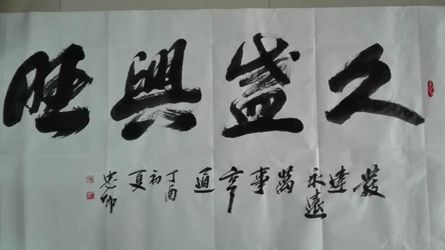 久盛興旺
發達永遠萬事亨通丁酉初夏